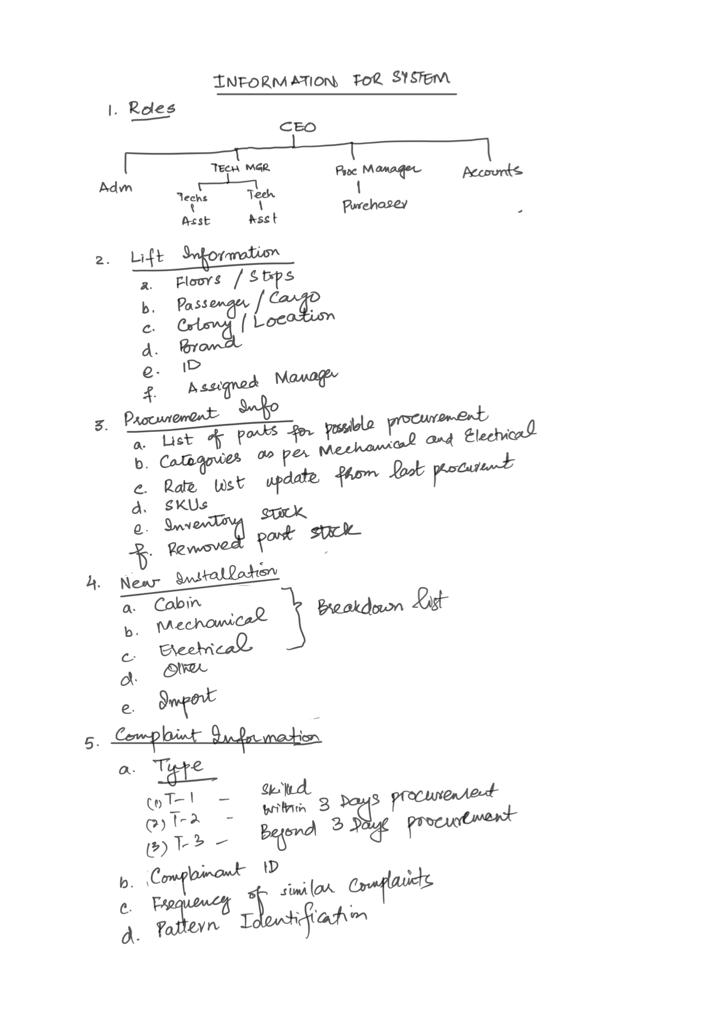 INFORMATION FOR SYSTEM
1. Roles
CEO
Adm TECH MGR Proc Manager Accounts
Techs Tech Purchaser
Asst Asst
2. Lift Information
a. Floors / Stops
b. Passenger / Cargo
c. Colony / Location
d. Brand
e. ID
f. Assigned Manager
3. Procurement Info
a. List of parts for possible procurement
b. Categories as per Mechanical and Electrical
c. Rate list update from last procurent
d. SKUs
e. Inventory stock
f. Removed part stock
4. New Installation
a. Cabin
b. Mechanical Breakdown list
c. Electrical
d. Other
e. Import
5. Complaint Information
a. Type
(1) T-1 - Skilled
(2) T-2 - Within 3 Days procurement
(3) T-3 - Beyond 3 Days procurement
b. Complainant ID
c. Frequency of similar Complaints
d. Pattern Identification